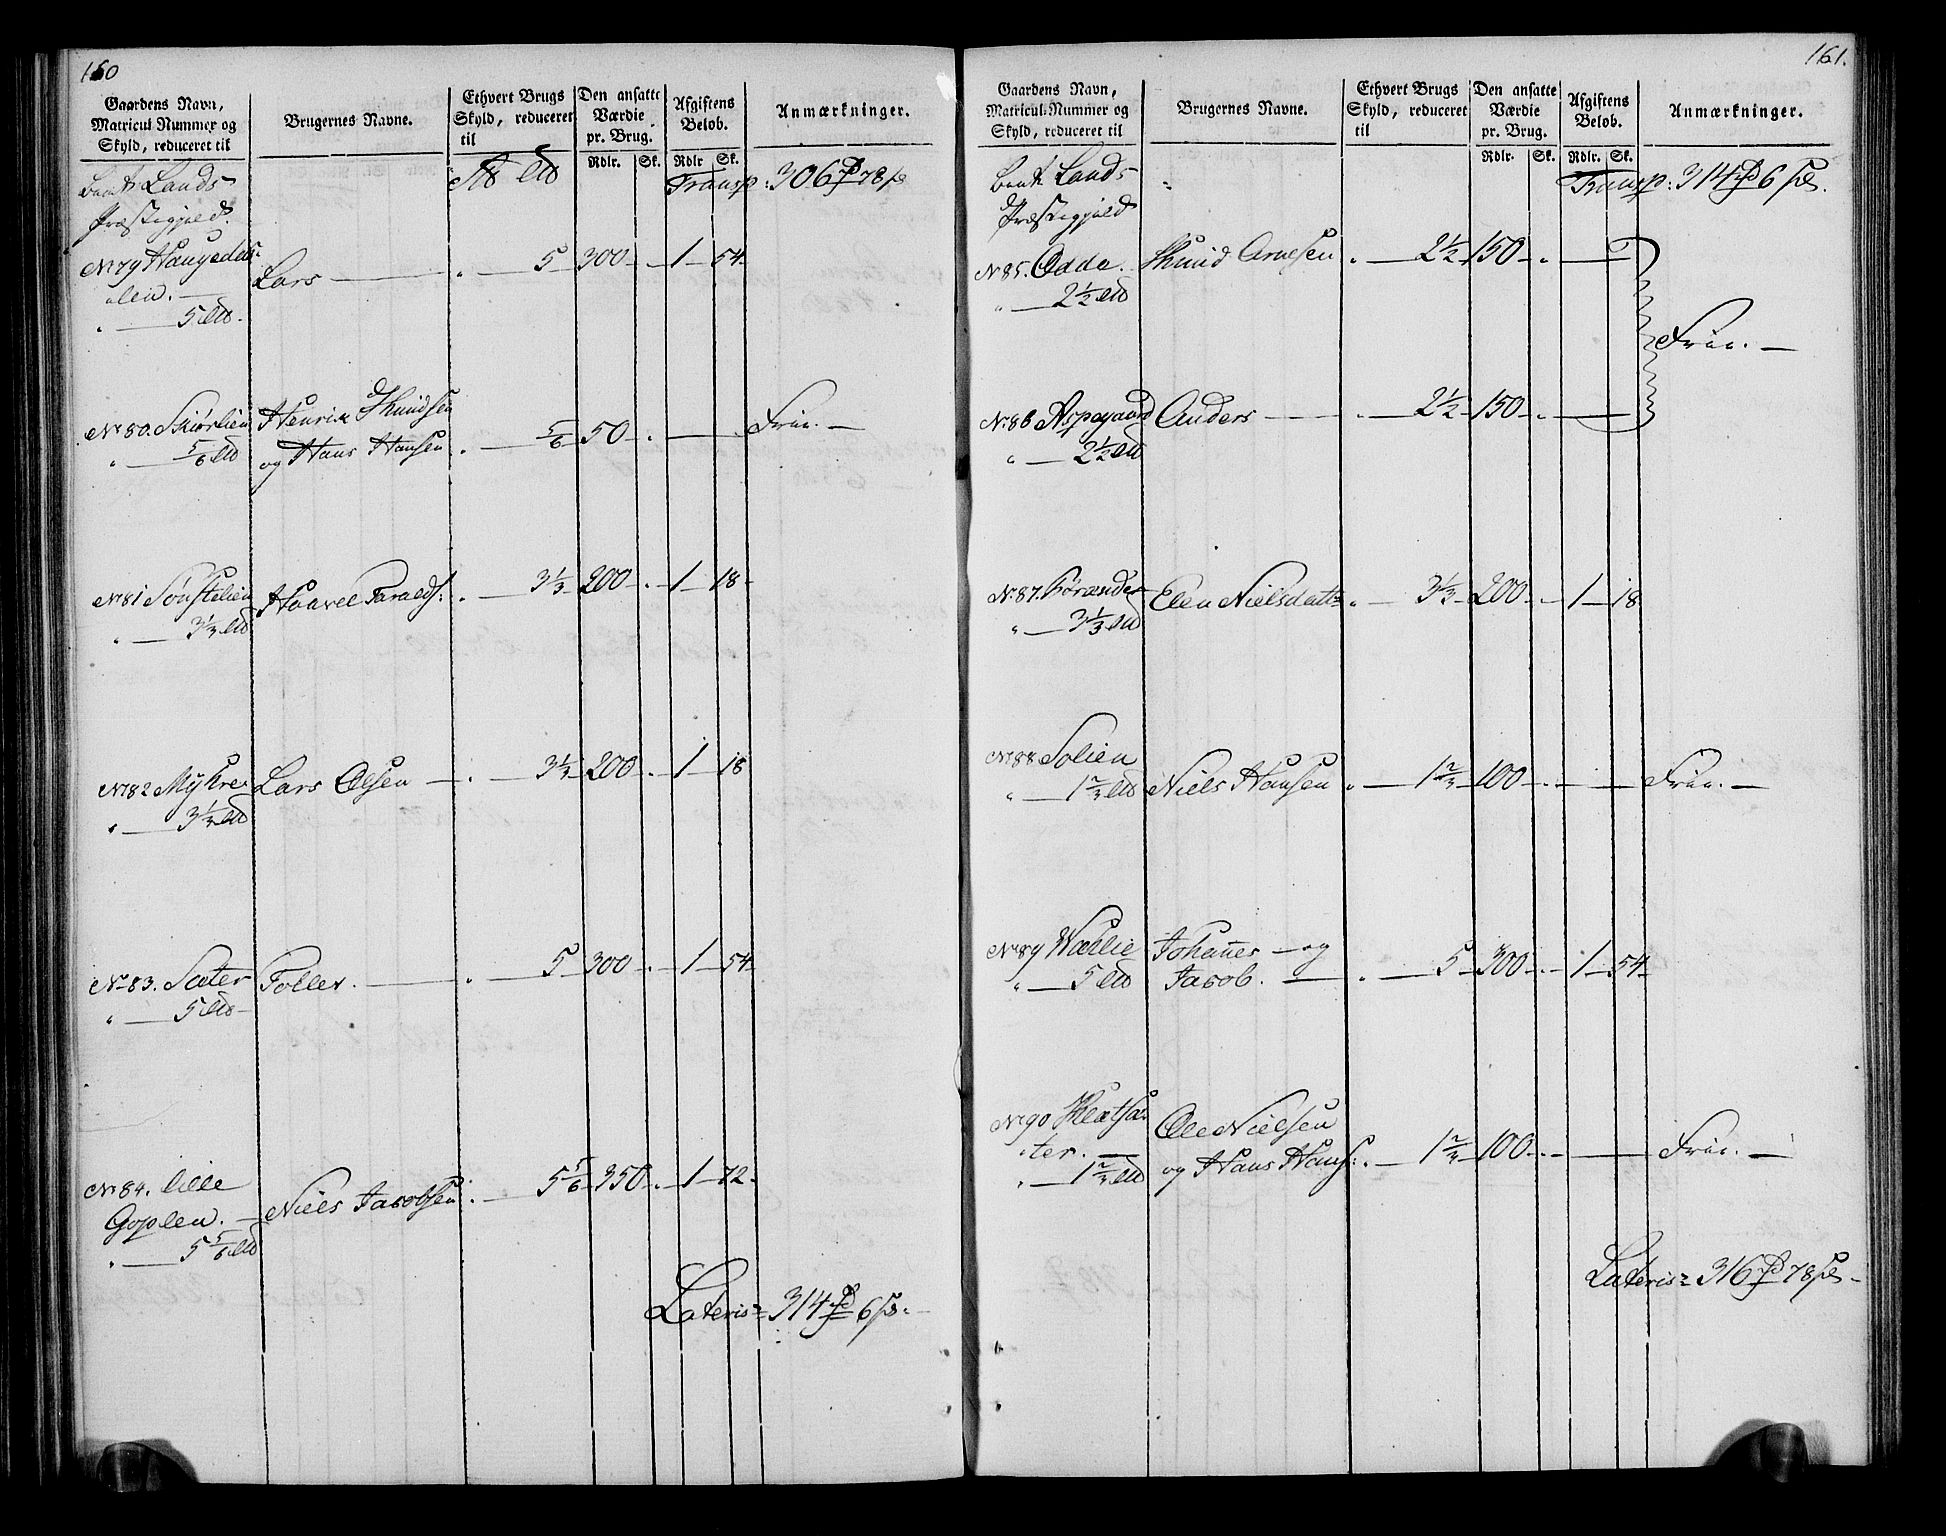 160
Gaardens Navn, Matricul Nummer og Skyld, reduceret til | Brugernes Navne. | Ethvert Brugs Skyld, reduceret til | Den ansatte Værdie pr. Brug. | Afgiftens Beløb. | Anmærkninger.
Rdlr. Sk. Rdlr Sk.
Lands Transp: 306 78
Præstegjeld.
No 79 Haugedal-
Lars 5 300 1 54
lien.
5
Henrik Knudsen
No 80. Skiørlien 5/6 50 Frie.
5/6 og Hans Hansen
No 81 Sønstelien Haavel Taralds: 3 1/3 200 1 18
3 1/3
No 82 Mykre Lars Olsen 3 1/3 200 1 18
3 1/3
No 83. Sæter Toller. 5 300 1 54
5
No 84. Lille
Goplen. Niels Jacobsen 5 5/6 350 1 72
5 5/6
Lateris 314 6
161.
Gaardens Navn, Matricul-Nummer og Skyld, reduceret til | Brugernes Navne. | Ethvert Brugs Skyld, reduceret til | Den ansatte Værdie pr. Brug. | Afgiftens Beløb. | Anmærkninger.
Rdlr. Sk. Rdlr. Sk.
Lands Transp: 314 6
Præstegjeld
No 85. Odde. Knud Arnesen 2 1/2 150
2 1/2
Frie.
No 86 Aspegaard Anders 2 1/2 150
2 1/2
No 87. Elen Nielsdatt 3 1/3 200 1 18
3 1/3
No 88 Solien
1 2/3 Niels Hansen 1 2/3 100 Frie.
No 89 Wælie Johannes og
5 Jacob. 5 300 1 54
No 90 Klætsæ-
Ole Nielsen
ter.
1 2/3 og Hans Hans: 1 2/3 100 Frie.
Lateris 316 78